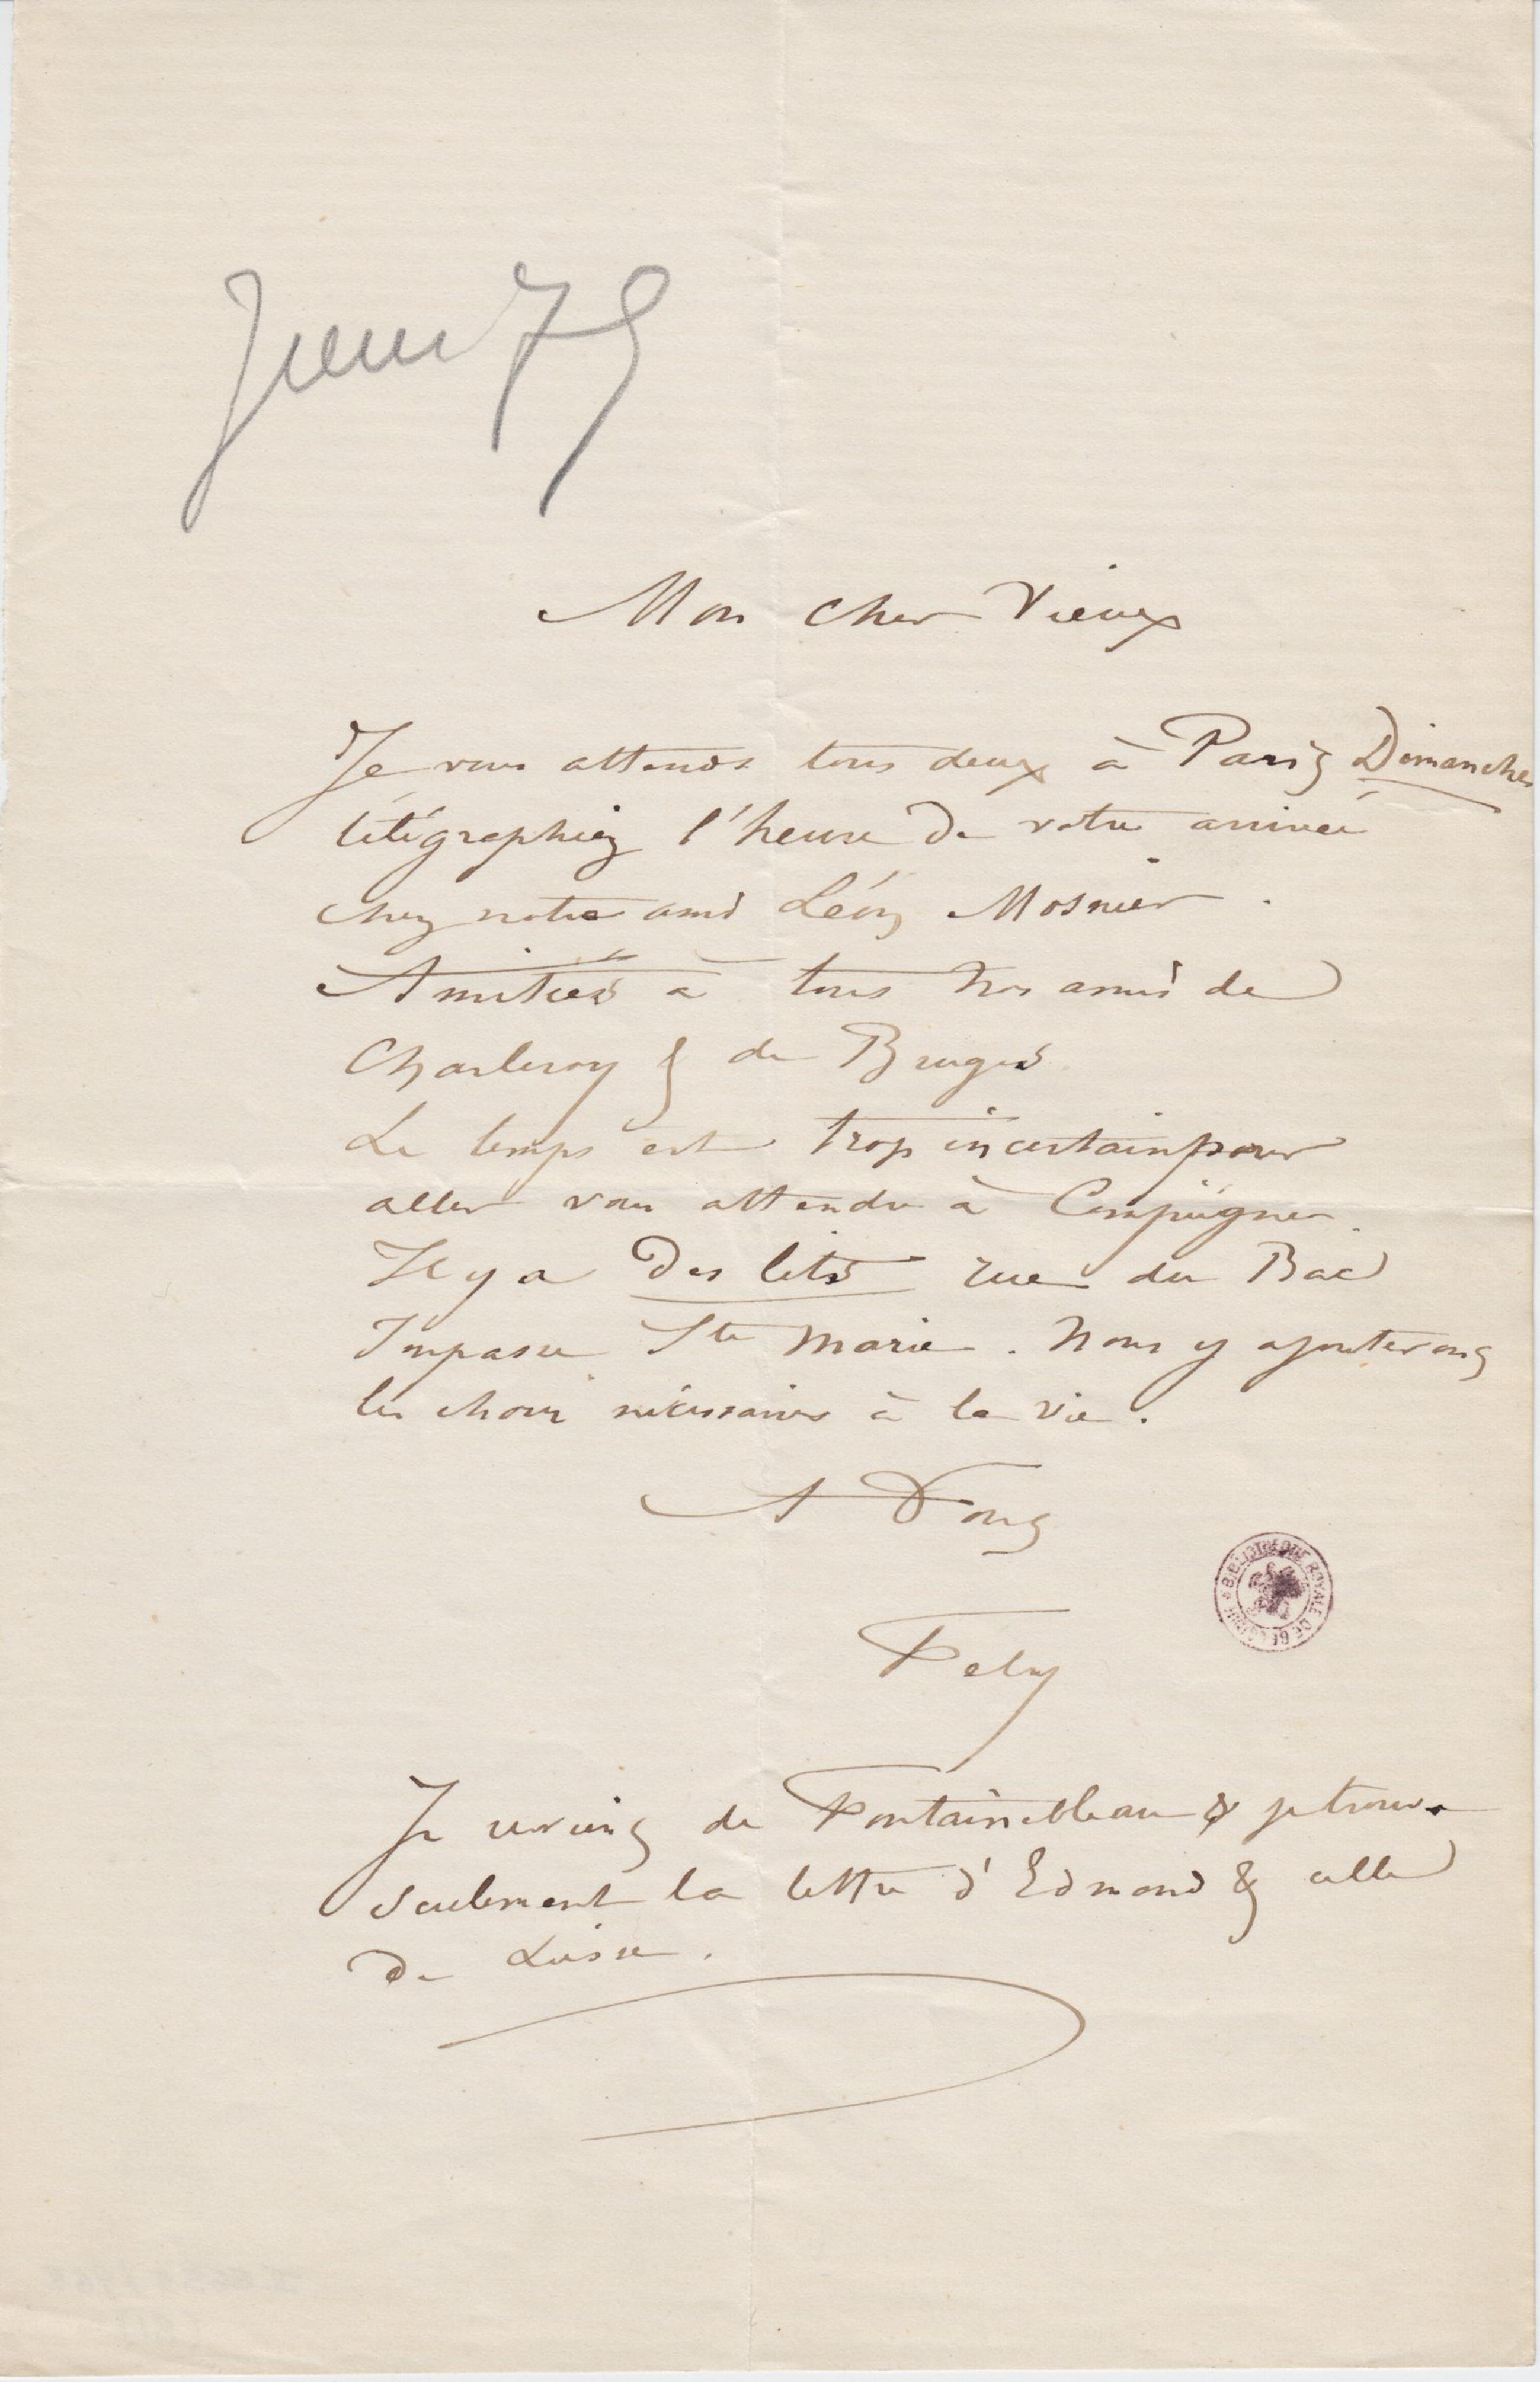 Juin 79
Mon cher Vieux
Je vous attends tous deux à Paris Dimanche
télégraphiez l'heure de votre arrivée
chez notre ami Léon Mosnier.
Amitiés à tous nos amis de
Charleroy & de Bruges
Le temps est trop incertain pour
aller vous attendre à Compiègne.
Il y a des lits rue du Bac
Impasse Ste Marie. Nous y ajouterons
les choses nécessaires à la vie.
A Vous
BIBLIOTHEQUE ROYALE DE BELGIQUE
Fely
Je reviens de Fontainebleau & je trouve
seulement la lettre d'Edmond & celle
de